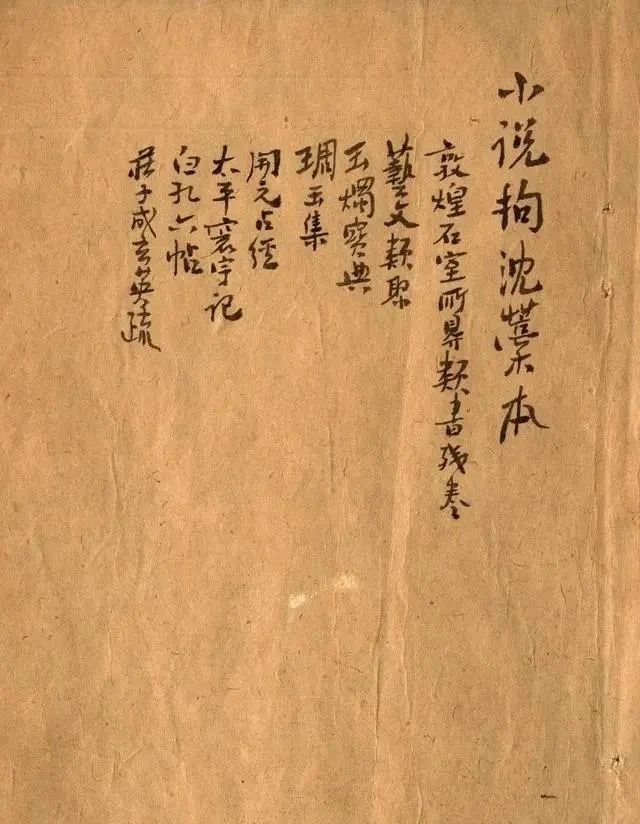 小说拘沈藁本
敦煌石室所㝵類書残卷
藝文類聚
玉燭寶典
琱玉集
開元占經
太平寰宇記
白孔六帖
莊子成玄英疏